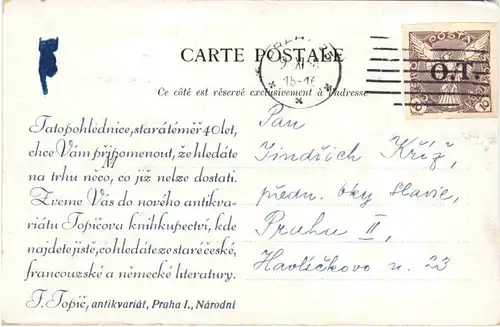 CARTE POSTALE
Ce côté est réservé exclusivement à l'adresse
POSTA
O.T.
15-16
Tato pohlédnice, stará téměř 40 let,
chce Vám připomenout, že hledáte
na trhu něco, co již nelze dostati.
Zveme Vás do nového antikva-
riátu Topičova knihkupectví, kde
najdete jistě, co hledáte ze staré české,
francouzské a německé literatury.
F. Topič, antikvariát, Praha I., Národní
Pan
Jindřich Kříž,
předn. Oky Slavie,
Praha II,
Havlíčkovo n. 23